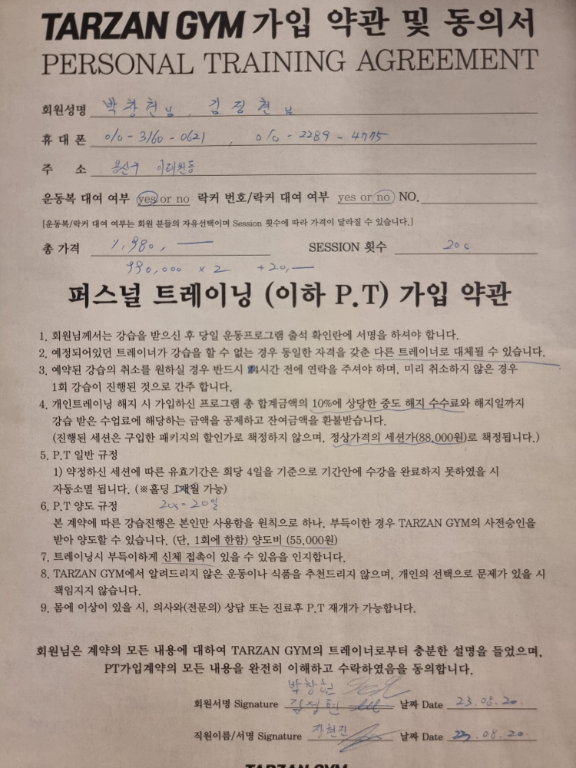 TARZAN GYM 가입 약관 및 동의서
PERSONAL TRAINING AGREEMENT
회원성명 박창현님, 김정현님
휴 대 폰 010-3160-0621, 010-2289-4775
주 소 용산구 이태원동
운동복 대여 여부 yes or no 락커 번호/락커 대여 여부 yes or no NO.
[운동복/락커 대여 여부는 회원 분들의 자유선택이며 Session 횟수에 따라 가격이 달라질 수 있습니다.]
총 가격 1,980,— SESSION 횟수
990,000 x 2 +20,—
퍼스널 트레이닝 (이하 P.T) 가입 약관
1. 회원님께서는 강습을 받으신 후 당일 운동프로그램 출석 확인란에 서명을 하셔야 합니다.
2. 예정되어있던 트레이너가 강습을 할 수 없는 경우 동일한 자격을 갖춘 다른 트레이너로 대체될 수 있습니다.
3. 예약된 강습의 취소를 원하실 경우 반드시 시간 전에 연락을 주셔야 하며, 미리 취소하지 않은 경우
1회 강습이 진행된 것으로 간주 합니다.
4. 개인트레이닝 해지 시 가입하신 프로그램 총 합계금액의 10%에 상당한 중도 해지 수수료와 해지일까지
강습 받은 수업료에 해당하는 금액을 공제하고 잔여금액을 환불받습니다.
(진행된 세션은 구입한 패키지의 할인가로 책정하지 않으며, 정상가격의 세션가(88,000원)로 책정됩니다.)
5. P.T 일반 규정
1) 약정하신 세션에 따른 유효기간은 회당 4일을 기준으로 기간안에 수강을 완료하지 못하였을 시
자동소멸 됩니다. (※홀딩 가능)
6. P.T 양도 규정
본 계약에 따른 강습진행은 본인만 사용함을 원칙으로 하나, 부득이한 경우 TARZAN GYM의 사전승인을
받아 양도할 수 있습니다. (단, 1회에 한함) 양도비 (55,000원)
7. 트레이닝시 부득이하게 신체 접촉이 있을 수 있음을 인지합니다.
8. TARZAN GYM에서 알려드리지 않은 운동이나 식품을 추천드리지 않으며, 개인의 선택으로 문제가 있을 시
책임지지 않습니다.
9. 몸에 이상이 있을 시, 의사와(전문의) 상담 또는 진료후 P.T 재개가 가능합니다.
회원님은 계약의 모든 내용에 대하여 TARZAN GYM의 트레이너로부터 충분한 설명을 들었으며,
PT가입계약의 모든 내용을 완전히 이해하고 수락하였음을 동의합니다.
박창현
회원서명 Signature 김정현 날짜 Date 23.08.20.
직원이름/서명 Signature 장현진 날짜 Date 23.08.20.
TARZAN GYM